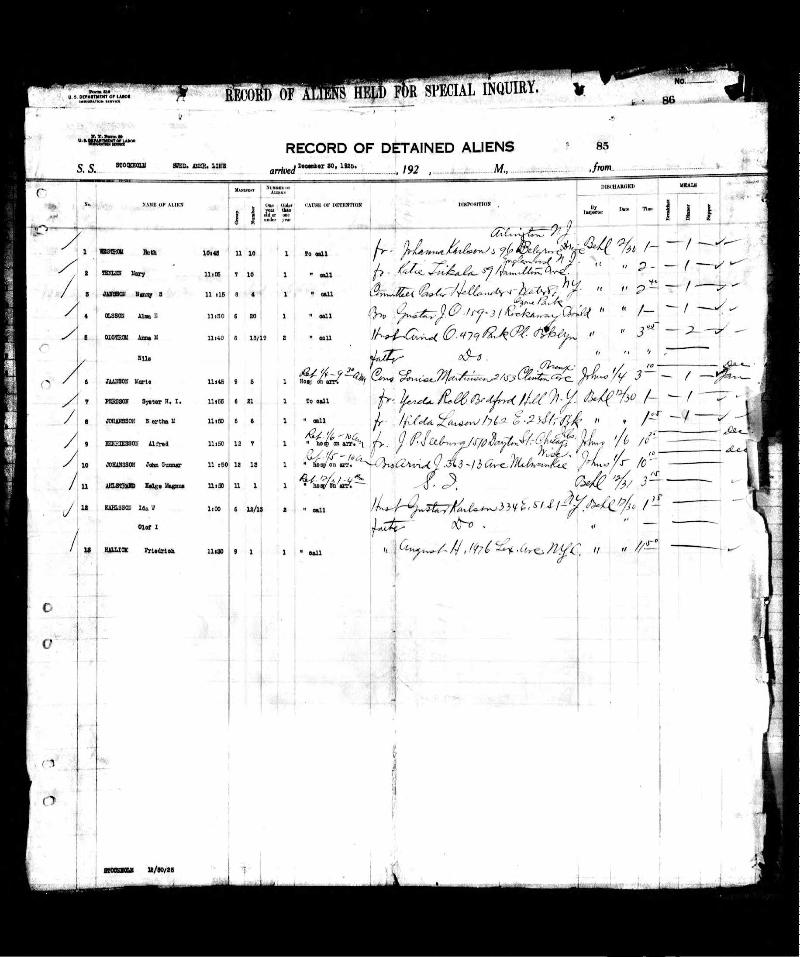 No.
Form 616
U. S. DEPARTMENT OF LABOR
IMMIGRATION SERVICE
RECORD OF ALIENS HELD FOR SPECIAL INQUIRY.
86
U. S. DEPARTMENT OF LABOR
IMMIGRATION SERVICE
RECORD OF DETAINED ALIENS 85
S. S. STOCKHOLM SWED. AMER. LINE arrived December 30, 1925. , 192 , M., , from
No. NAME OF ALIEN MANIFEST Group Number NUMBER OF ALIENS One year old or under Older than one year CAUSE OF DETENTION DISPOSITION DISCHARGED By Inspector Date Time MEALS Breakfast Dinner Supper
Arlington N J
1 Ruth 10:45 11 10 1 To call fr. Johanna Karlson 96 Ave Behl 12/30 1 — 1 —
Englewood N. J.
2 Mary 11:05 7 10 1 " call fr. Katie 59 Hamilton Ave " " 2 — 1 —
3 JANSSON Nanny S 11:15 8 4 1 " call Committee Pastor Hellander 5 Water St. N.Y. " " 2 — 1 —
4 OLSSON Alma E 11:30 6 20 1 " call Gustav J. O. 159-31 Rockaway " " 1 — 1 —
5 Anna M 11:40 6 18/19 2 " call Husb Arvid O. 479 Park Pl. Bklyn " " 3 — 2 —
Nils father Do. " " "
Bronx
6 JAANSON Marie 11:45 9 5 1 Hosp on arr. Cous Louise Martinsen 2153 Clinton Ave Johns 1/4 3 10 — 1 — Jan
7 PERSSON Syster H. I. 11:55 6 21 1 To call fr. Gerda Roll Bedford Hill N. Y. Behl 12/30 1 — 1 —
8 JOHANSSON Bertha M 11:50 5 6 1 " call fr. Hilda Larson 1762 E. 23 St. Bk " " 1 — 1 —
Rel 1/6 - 10 am
9 HENRIKSSON Alfred 11:50 12 7 1 " hosp on arr. fr. J. P. Seeburg 1510 Dayton St. Chicago Johns 1/6 10 Dec
Rel 1/5 - 10 am Wisc.
10 JOHANSSON John Gunnar 11:50 12 12 1 " hosp on arr. Arvid J. 363-13 Ave Milwaukee Johns 1/5 10 Dec
Rel 12/31 - 4 pm
11 AHLSTRAND Helge Magnus 11:50 11 1 1 " hosp on arr. S. I. Behl 12/31 3
12 KARLSSON Ida V 1:00 6 12/13 2 " call Husb Gustav Karlson 334 E. 51 St NY. Behl 12/30 1
Olof I father Do. " "
13 HALLICK Friedrich 11:30 9 1 1 " call " August H. 1476 Lex. Ave N.Y.C. " " 11 50
STOCKHOLM 12/30/25